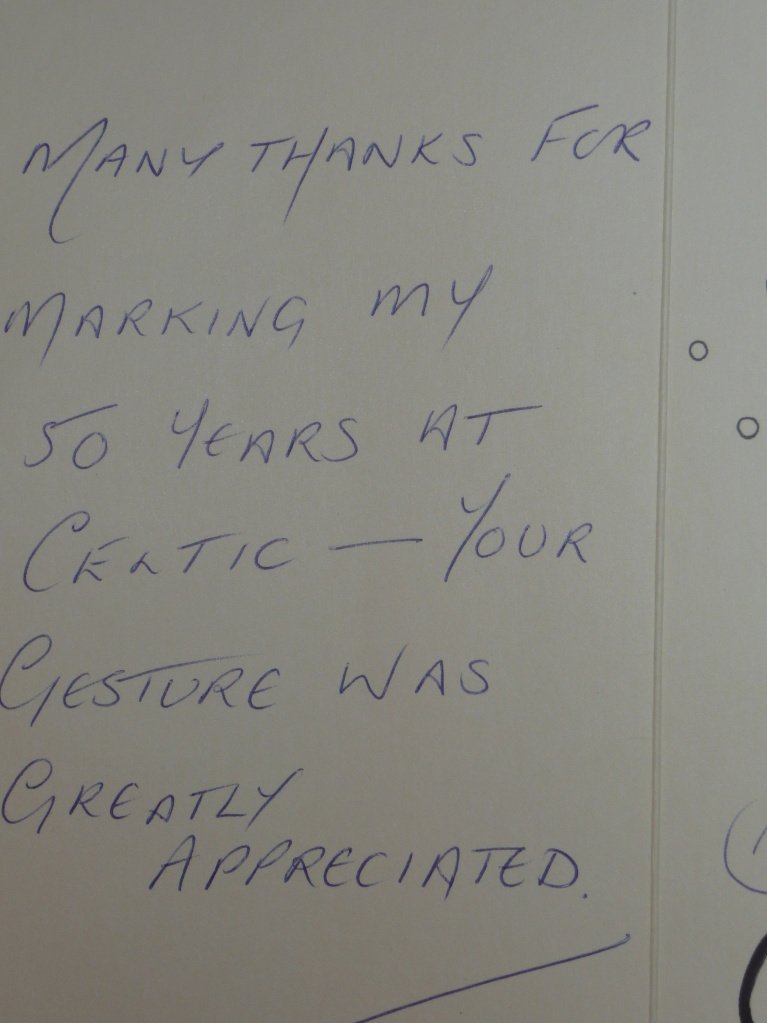 MANY THANKS FOR
MARKING MY
50 YEARS AT
CELTIC — YOUR
GESTURE WAS
GREATLY
APPRECIATED.